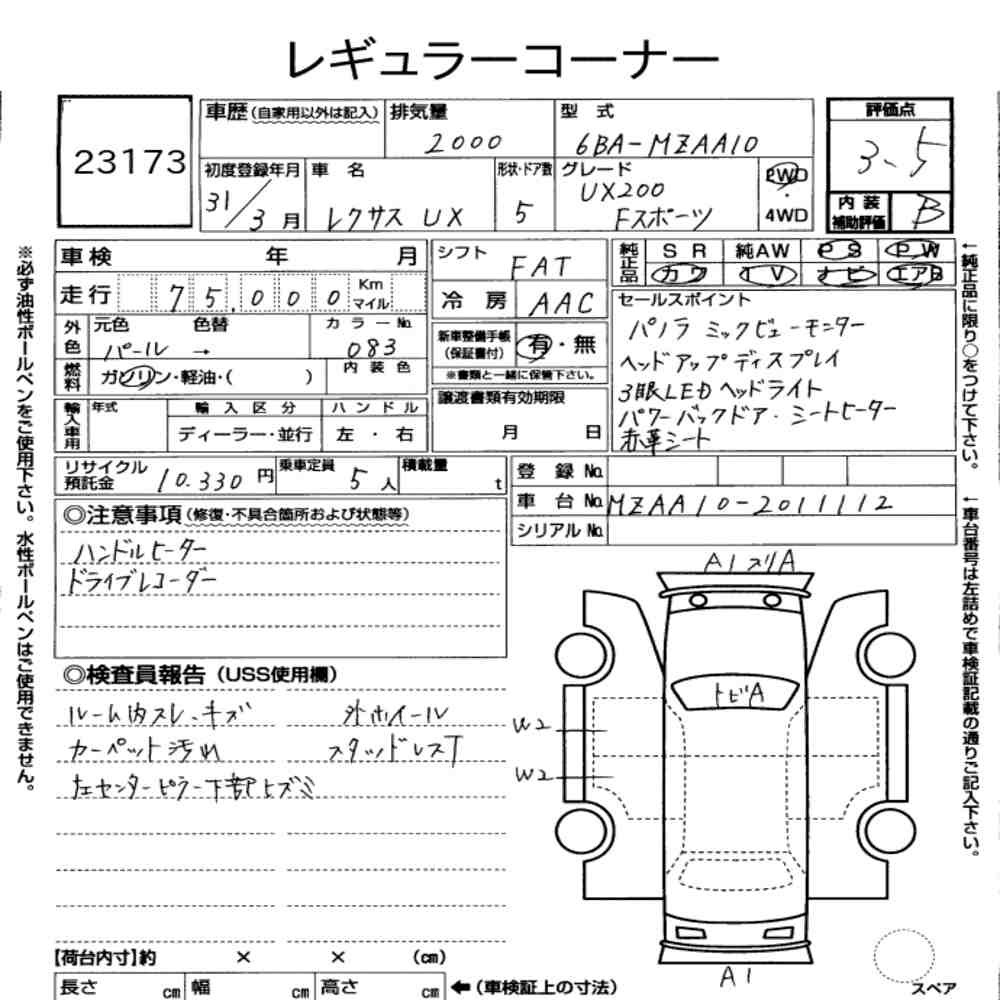 レギュラーコーナー
23173
車歴(自家用以外は記入)
排気量
2000
型 式
6BA-MZAA10
評価点
3-5
初度登録年月
31/3月
車 名
レクサス UX
形状・ドア数
5
グレード
UX200
Fスポーツ
2WD
・
4WD
内 装
補助評価
B
車検 年 月
シフト
FAT
純正品
SR 純AW PS PW
カワ TV ナビ エアB
走行 75,000 Km マイル
冷 房
AAC
セールスポイント
パノラミックビューモニター
ヘッドアップディスプレイ
3眼LEDヘッドライト
パワーバックドア・シートヒーター
赤革シート
外色
元色 色替
パール →
カラーNo.
083
新車整備手帳
(保証書付)
有・無
※書類と一緒に保管下さい。
燃料
ガソリン・軽油・( )
内装色
輸入車用
年式
輸入区分
ディーラー・並行
ハンドル
左・右
譲渡書類有効期限
月 日
リサイクル
預託金
10.330円
乗車定員
5人
積載量
t
登 録 No.
車 台 No. MZAA10-2011112
シリアル No.
◎注意事項(修復・不具合箇所および状態等)
ハンドルヒーター
ドライブレコーダー
◎検査員報告(USS使用欄)
ルーム内スレ、キズ
外ホイール
カーペット汚れ
スタッドレスT
左センターピラー下部ヒズミ
A1スリA
トビA
W2
W2
A1
スペア
【荷台内寸】約 × × (cm)
長さ cm 幅 cm 高さ cm
←(車検証上の寸法)
※必ず油性ボールペンをご使用下さい。水性ボールペンはご使用できません。
←純正品に限り○をつけて下さい。
←車台番号は左詰めで車検証記載の通りご記入下さい。